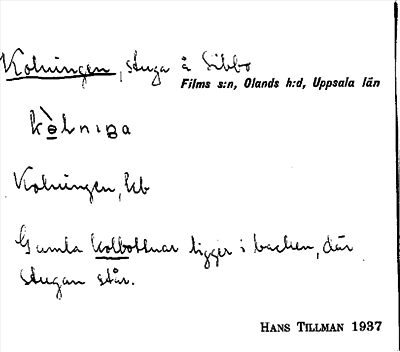 Kolningen, stuga å Sibbo
Films s:n, Olands h:d, Uppsala län
Kolningen, kb
Gamla kolbottnar ligger i backen, där
stugan står.
HANS TILLMAN 1937